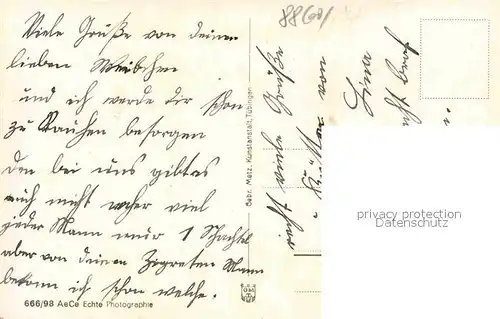 Viele Grüße von deinen
lieben Weibchen
und ich werde dir schon
zu Rauchen besorgen
den bei uns gibt es
auch nicht mehr viel
jeder Mann nur 1 Schachtel
aber von deinen Zigreten Mann
bekom ich schon welche.
666/98 AeCe Echte Photographie
Gebr. Metz, Kunstanstalt, Tübingen
8860/
recht viele Grüße
u. Küsse von
Lina
privacy protection
Datenschutz